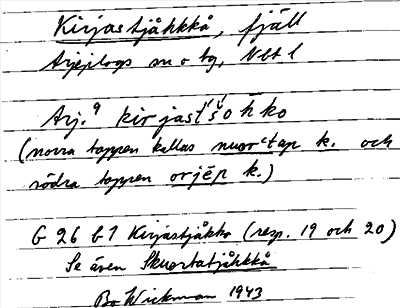 Kirjastjåhkkå, fjäll
Arjeplogs sn o tg, Nbt l
Arj. 9 kirjast́šohko
(norra toppen kallas nuorᵋtap k. och
södra toppen orjēp k.)
G 26 b 1 Kirjastjåkko (resp. 19 och 20)
Se även Skuortatjåhkkå
Bo Wickman 1943